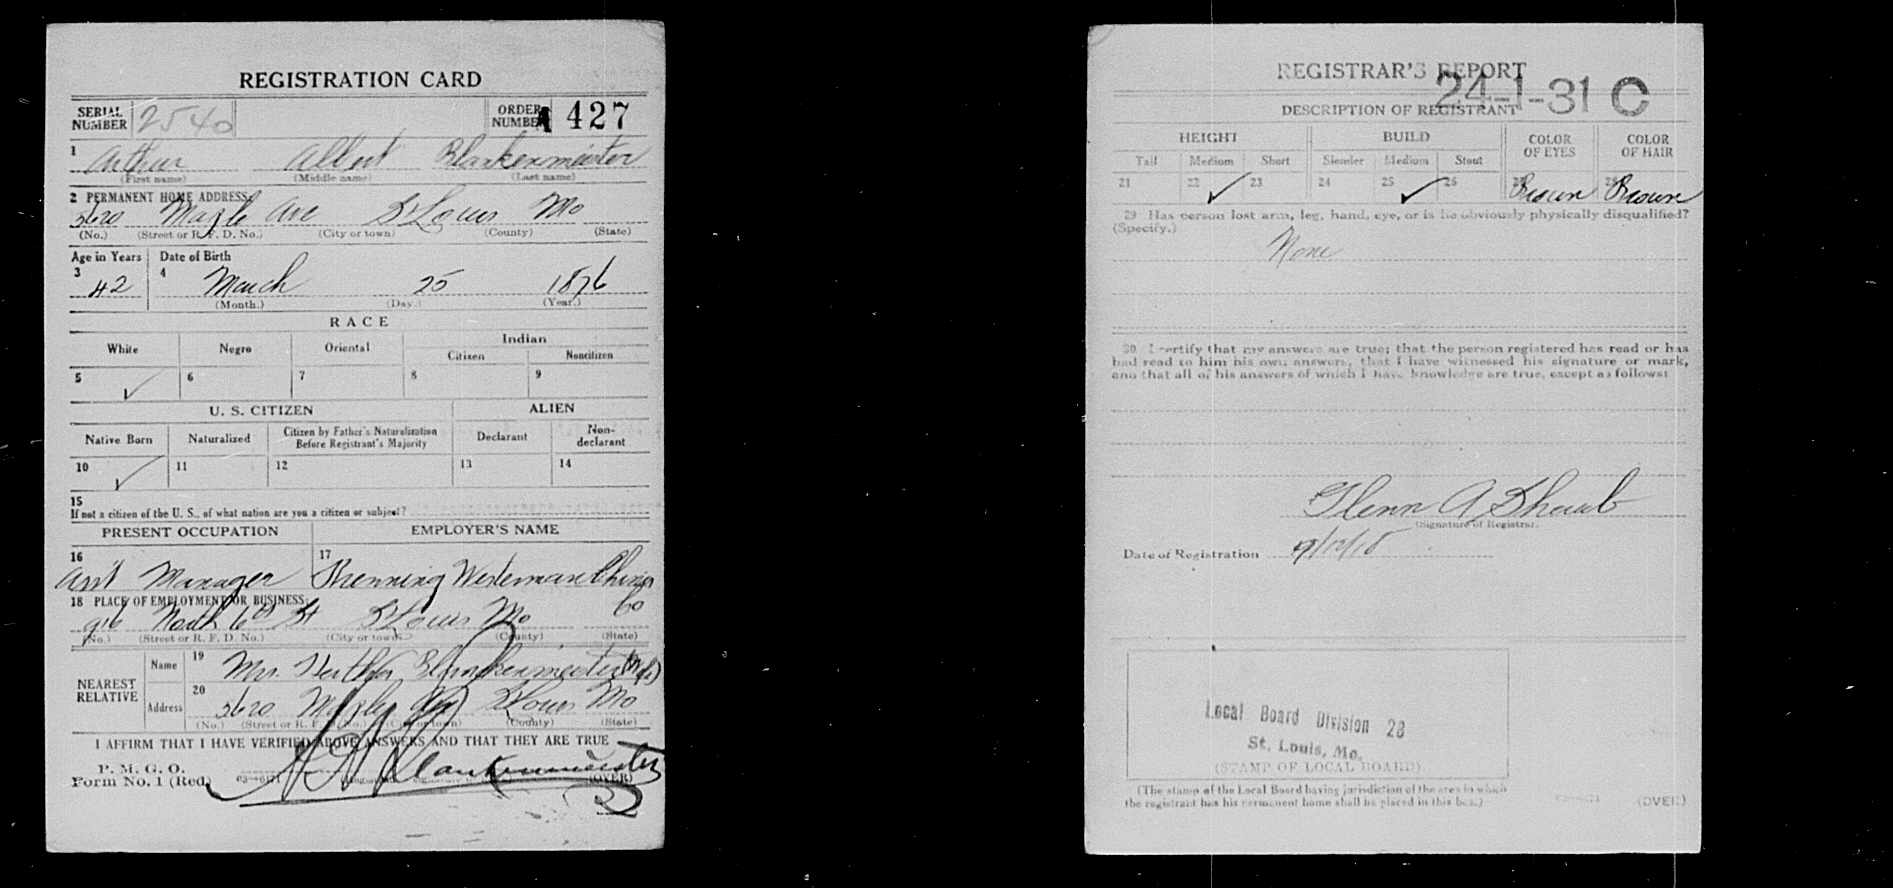 REGISTRATION CARD
SERIAL NUMBER 2540 ORDER NUMBER 427
1 Arthur Albert Blankenmeister
(First name) (Middle name) (Last name)
2 PERMANENT HOME ADDRESS:
5620 Maple Ave St Louis Mo
(No.) (Street or R. F. D. No.) (City or town) (County) (State)
Age in Years Date of Birth
3 42 4 March 25 1876
(Month.) (Day.) (Year.)
RACE
White Negro Oriental Indian
Citizen Noncitizen
5 ✓ 6 7 8 9
U. S. CITIZEN ALIEN
Native Born Naturalized Citizen by Father's Naturalization Before Registrant's Majority Declarant Non-declarant
10 ✓ 11 12 13 14
15
If not a citizen of the U. S., of what nation are you a citizen or subject?
PRESENT OCCUPATION EMPLOYER'S NAME
16 Ass't Manager 17 Westerman China Co
18 PLACE OF EMPLOYMENT OR BUSINESS:
916 North 6th St St Louis Mo
(No.) (Street or R. F. D. No.) (City or town) (County) (State)
NEAREST RELATIVE
Name 19 Mrs. Blankenmeister
Address 20 5620 Maple Ave St Louis Mo
(No.) (Street or R. F. D. No.) (City or town) (County) (State)
I AFFIRM THAT I HAVE VERIFIED ABOVE ANSWERS AND THAT THEY ARE TRUE
P. M. G. O.
Form No. 1 (Red) A A Blankenmeister (OVER)
REGISTRAR'S REPORT
24-1-31 C
DESCRIPTION OF REGISTRANT
HEIGHT BUILD COLOR OF EYES COLOR OF HAIR
Tall Medium Short Slender Medium Stout
21 22 ✓ 23 24 25 ✓ 26 27 Brown 28 Brown
29 Has person lost arm, leg, hand, eye, or is he obviously physically disqualified?
(Specify.)
None
30 I certify that my answers are true; that the person registered has read or has
had read to him his own answers, that I have witnessed his signature or mark,
and that all of his answers of which I have knowledge are true, except as follows:
Glenn A Shaub
(Signature of Registrar.
Date of Registration 9/12/18
Local Board Division 28
St. Louis, Mo.
(STAMP OF LOCAL BOARD)
(The stamp of the Local Board having jurisdiction of the area in which
the registrant has his permanent home shall be placed in this box.)
(OVER)